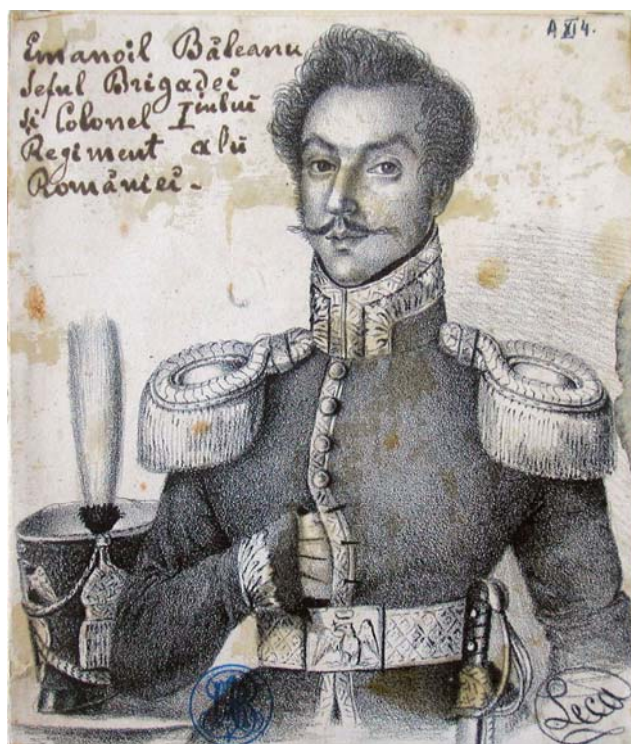 Emanoil Băleanu
șeful Brigadeĭ
și Colonel Iiului
Regiment alŭ
Românieĭ -
A XI 4.
Leca